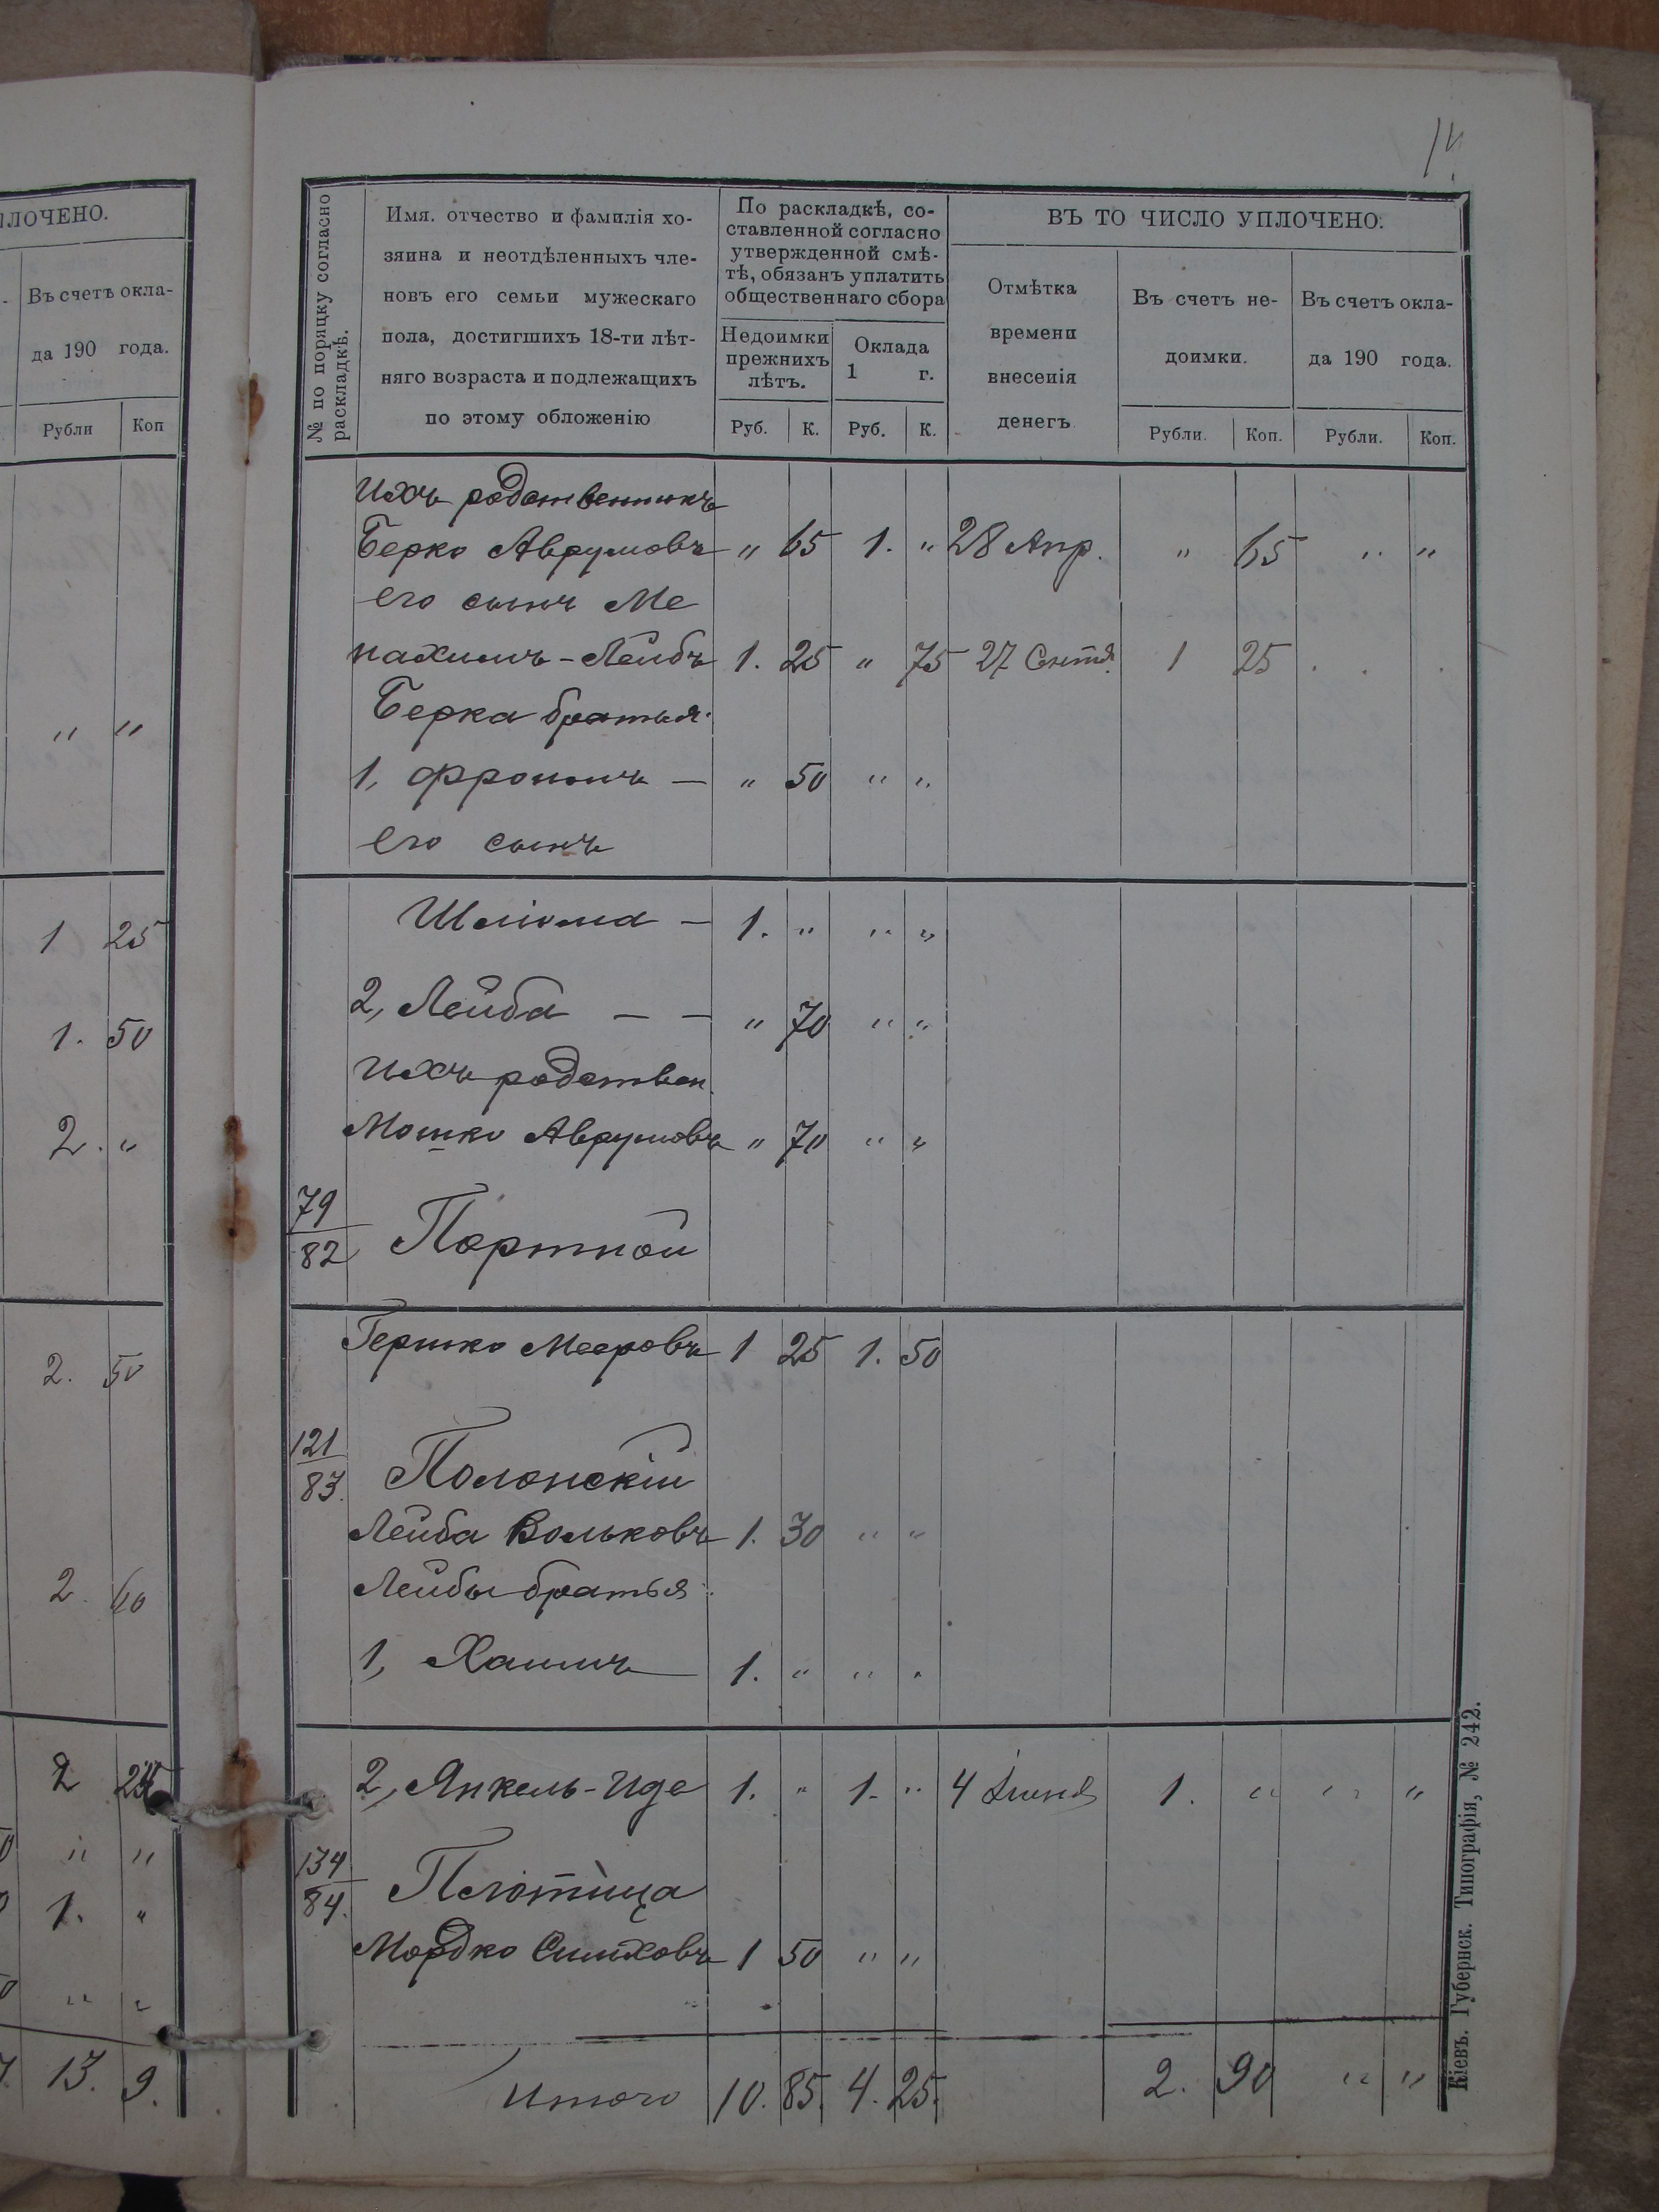 ПЛОЧЕНО.
Въ счетъ окла-
да 190 года.
Рубли Коп
" "
1 25
1. 50
2. "
2. 50
2. 60
2
" "
1. "
" "
13. 9.
14.
№ по порядку согласно раскладкѣ.
Имя, отчество и фамилія хо-
зяина и неотдѣленныхъ чле-
новъ его семьи мужескаго
пола, достигшихъ 18-ти лѣт-
няго возраста и подлежащихъ
по этому обложенію
По раскладкѣ, со-
ставленной согласно
утвержденной смѣ-
тѣ, обязанъ уплатить
общественнаго сбора
Недоимки
прежнихъ
лѣтъ.
Оклада
1 г.
Руб. К. Руб. К.
ВЪ ТО ЧИСЛО УПЛОЧЕНО:
Отмѣтка
времени
внесенія
денегъ
Въ счетъ не-
доимки.
Въ счетъ окла-
да 190 года.
Рубли. Коп. Рубли. Коп.
Ихъ родственникъ
Берко Аврумовъ " 65 1. " 28 Апр. " 65 " "
его сынъ Ме
нахимъ-Лейбъ 1. 25 " 75 27 Сентя. 1 25 . . .
Берка братья:
1, Фроимъ — " 50 " "
его сынъ
Шліома — 1. " " "
2, Лейба — — " 70 " "
Ихъ родствен.
Мошко Аврумовъ " 70 " "
79/82 Портной
Гершко Мееровъ 1 25 1. 50
121/83. Полонскій
Лейба Вольковъ 1. 30 " "
Лейбы братья:
1, Хаимъ 1. " " "
2, Янкель-Иде 1. " 1. " 4 Іюня 1. " " "
134/84. Плотица
Мордко Симховъ 1 50 " "
Итого 10. 85. 4. 25. 2. 90 " "
Кіевъ. Губернск. Типографія, № 242.